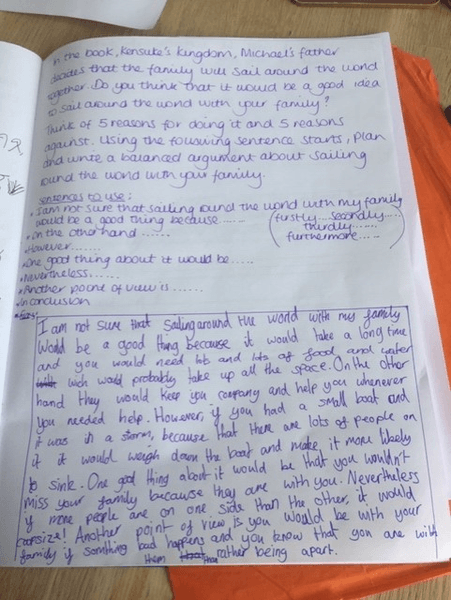 In the book, Kensuke's Kingdom, Michael's father
decides that the family will sail around the world
together. Do you think that it would be a good idea
to sail around the world with your family?
Think of 5 reasons for doing it and 5 reasons
against. Using the following sentence starts, plan
and write a balanced argument about sailing
round the world with your family.
sentences to use:
• I am not sure that sailing round the world with my family
would be a good thing because......
(firstly....secondly....
thirdly......
furthermore.....)
• On the other hand ......
• However.......
• One good thing about it would be.....
• Nevertheless......
• Another point of view is ......
• In conclusion
I am not sure that sailing around the world with my family
Would be a good thing because it would take a long time
and you would need lots and lots of food and water
wich would probably take up all the space. On the other
hand they would keep you company and help you whenever
you needed help. However, if you had a small boat and
it was in a storm, because that there are lots of people on
it it would weigh down the boat and make it more likely
to sink. One good thing about it would be that you wouldn't
miss your family because they are with you. Nevertheless
if more people are on one side than the other, it would
capsize! Another point of view is you would be with your
family if somthing bad happens and you know that you are with
them than rather being apart.